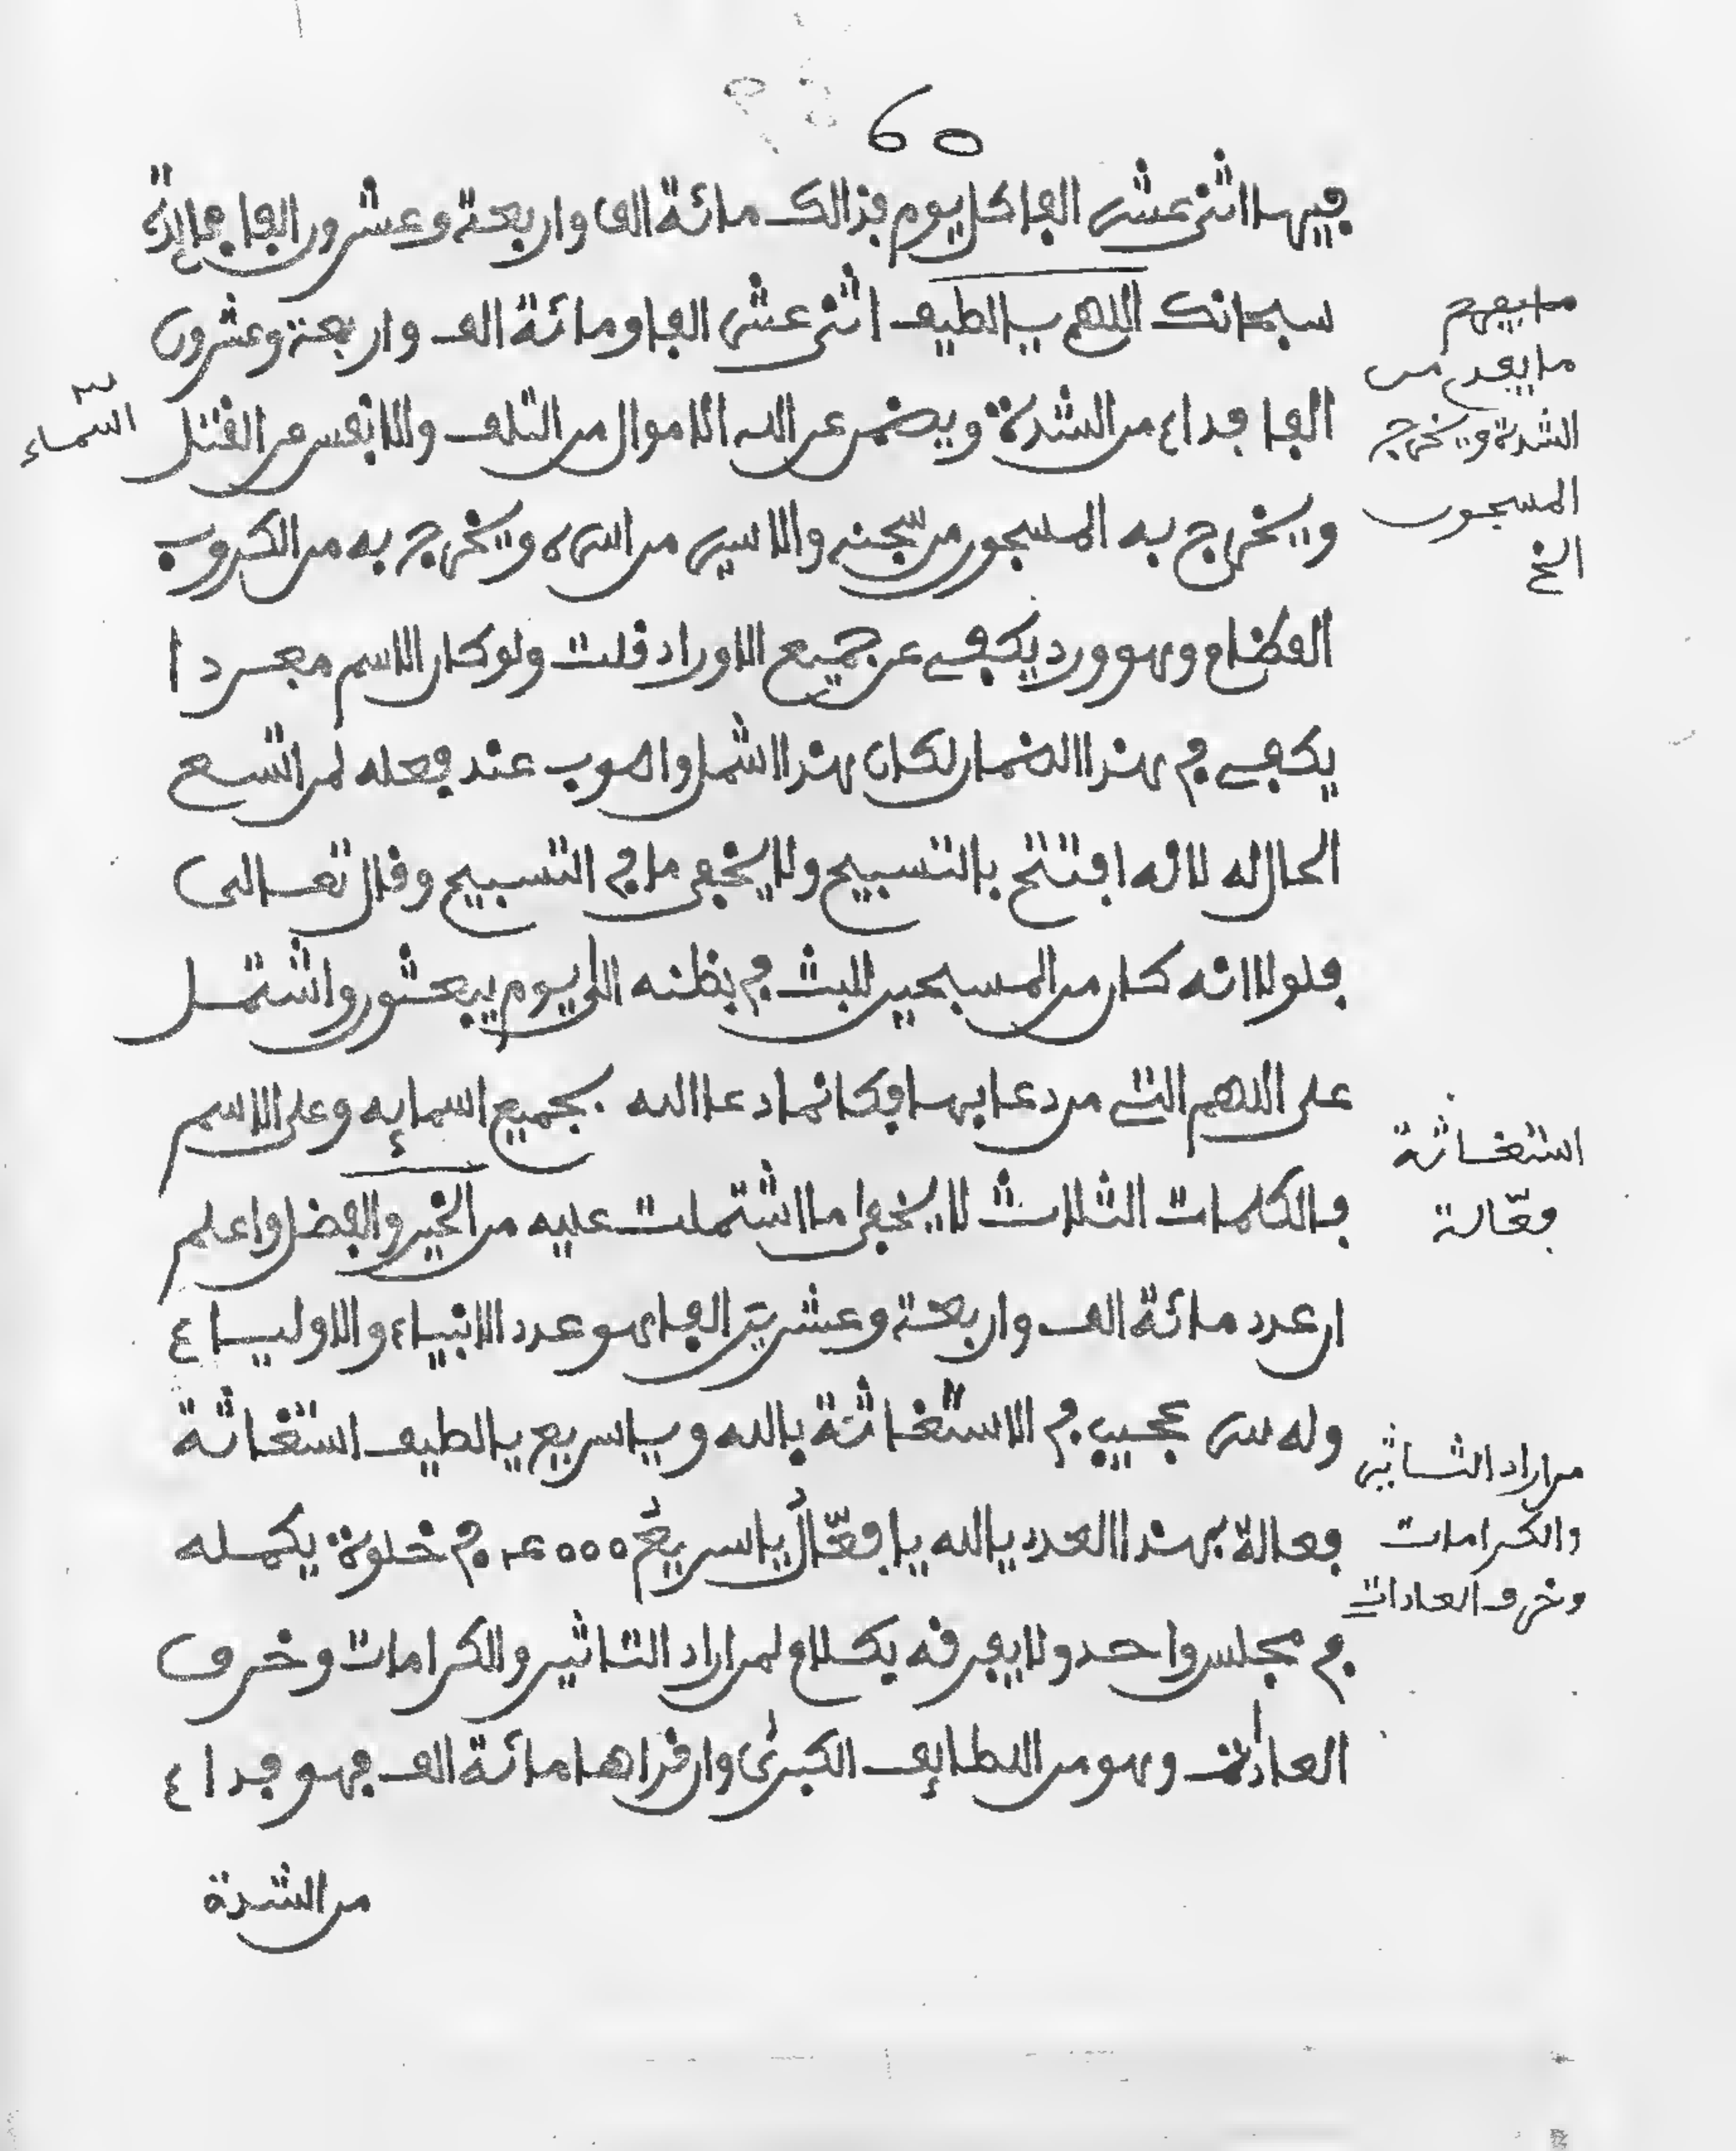 60
فيها اثنى عشر الفا كل يوم فذالك مائة الف واربعة وعشرون الفا
سبحانك اللهم يا لطيف اثنى عشر الفا ومائة الف واربعة وعشرون
الفا فداء من الشدة ويضمن عن الله الاموال من التلف والانفس من القتل
ويخرج به المسجون من سجنه والاسير من اسره ويخرج به من الكروب
العظام وهو ورد يكفي عن جميع الاوراد قلت ولو كان الاسم مجردا
يكفي في هذا الضمان لكان هذا اشمل واصوب عند فعله لمن اتسع
الحال له لانه افتتح بالتسبيح ولا يخفى ما في التسبيح وقال تعالى
فلولا انه كان من المسبحين للبث في بطنه الى يوم يبعثون واشتمل
على اللهم التي من دعا بها فكانما دعا الله بجميع اسمايه وعلى الاسم
فالكلمات الثلاث لا يخفى ما اشتملت عليه من الخير والفضل واعلم
ان عدد مائة الف واربعة وعشرين الفا هو عدد الانبياء والاولياء
وله سر عجيب في الاستغاثة بالله ويا سريع يا لطيف استغاثة
فعالة بهذا العدد يا الله يا فعّالُ يا سريعُ في خلوة يكمله
في مجلس واحد ولا يفرقه بكلام لمن اراد التاثير والكرامات وخرق
العادات وهو من اللطايف الكبرى وان قراها مائة الف فهو فداء
من الشدة
السّماء
ما يفدى من
الشدة ويخرج
المسجون
الخ
استغاثة
فعّالة
من اراد التاثير
والكرامات
وخرق العادات